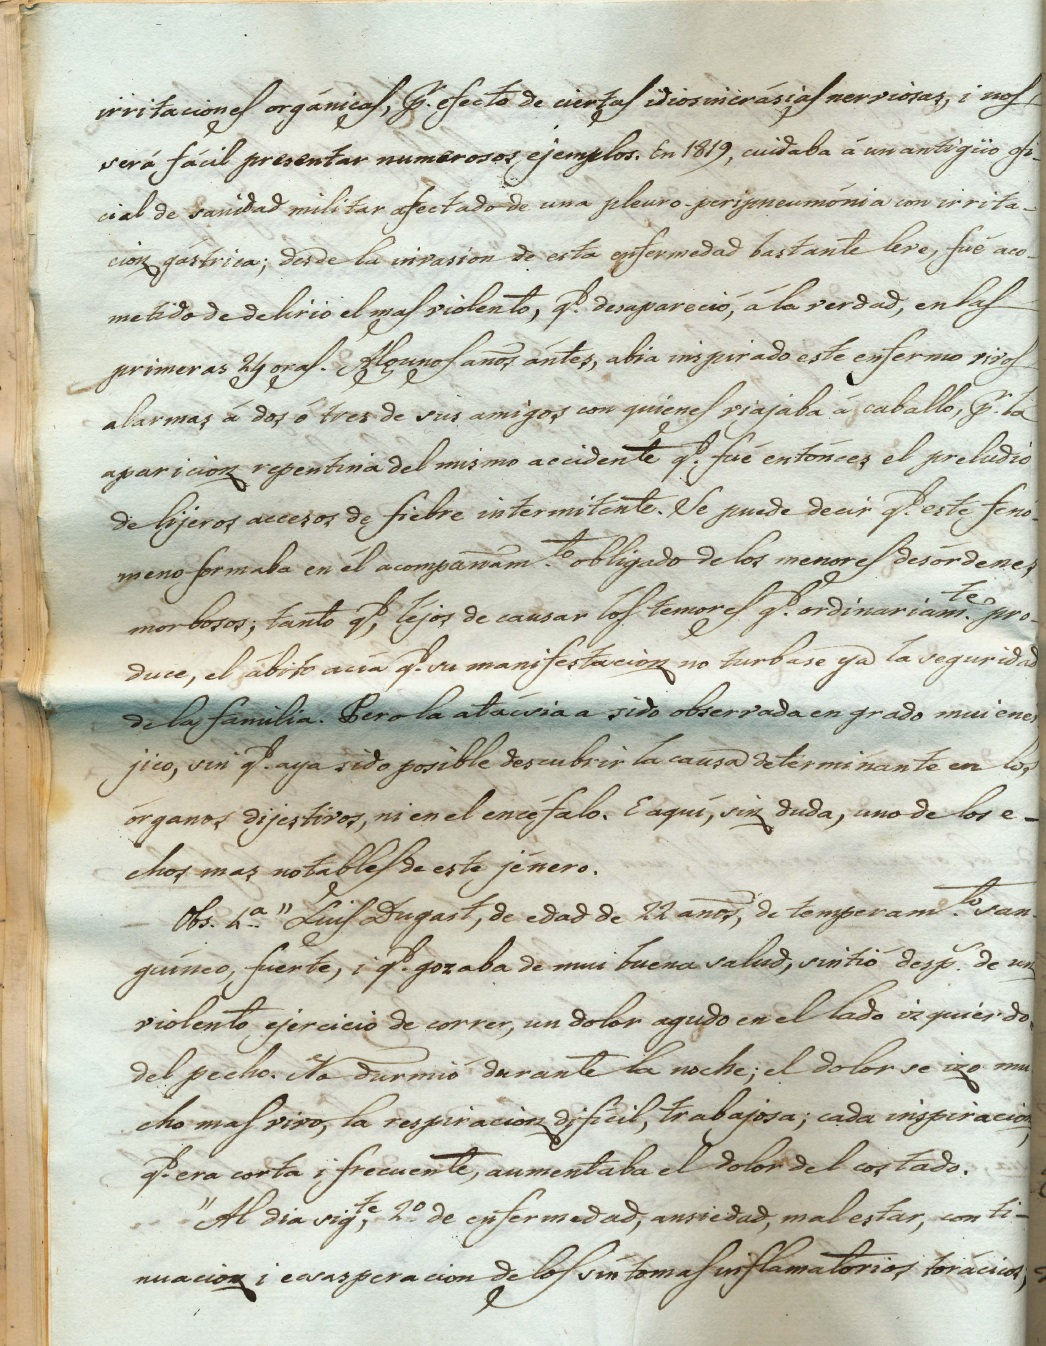 irritaciones orgánicas, pr. efecto de ciertas idiosincrásias nerviosas, i nos
será fácil presentar numerosos ejemplos. En 1819, cuidaba á un antigüo ofi-
cial de sanidad militar afectado de una pleuro-peripneumónia con irrita-
cion gástrica; desde la invasion de esta enfermedad bastante leve, fué aco-
metido de delirio el mas violento, qe. desapareció, á la verdad, en las
primeras 24 oras. Algunos años ántes, abia inspirado este enfermo vivas
alarmas á dos ó tres de sus amigos con quienes viajaba á caballo, pr. la
aparicion repentina del mismo accidente qe. fué entónces el preludio
de lijeros accesos de fiebre intermitente. Se puede decir qe. este fenó-
meno formaba en él acompañamto. obligado de los menores desórdenes
morbosos; tanto qe, lejos de causar los temores qe. ordinariamte. pro-
duce, el ábito acia qe. su manifestacion no turbase ya la seguridad
de la familia. Pero la atácsia a sido observada en grado mui ener
jico, sin qe. aya sido posible descubrir la causa determinante en los
órganos dijestivos, ni en el encéfalo. E aquí, sin duda, uno de los e-
chos mas notables de este jénero.
Obs. 4a. " Luis Dugast, de edad de 22 años, de temperamto. san-
guíneo, fuerte, i qe. gozaba de mui buena salud, sintió desp. de un
violento ejercicio de correr, un dolor agudo en el lado izquierdo
del pecho. No durmió durante la noche; el dolor se izo mu
cho mas vivo, la respiracion difícil, trabajosa; cada inspiracion,
qe. era corta i frecuente, aumentaba el dolor del costado.
"Al dia sigte, 2o. de enfermedad, ansiedad, mal estar, conti-
nuacion i ecsasperacion de los síntomas inflamatorios torácicos,